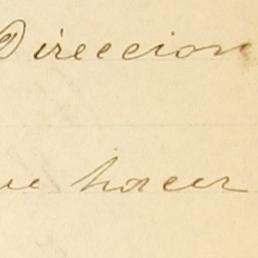 Direccion
ue hacer